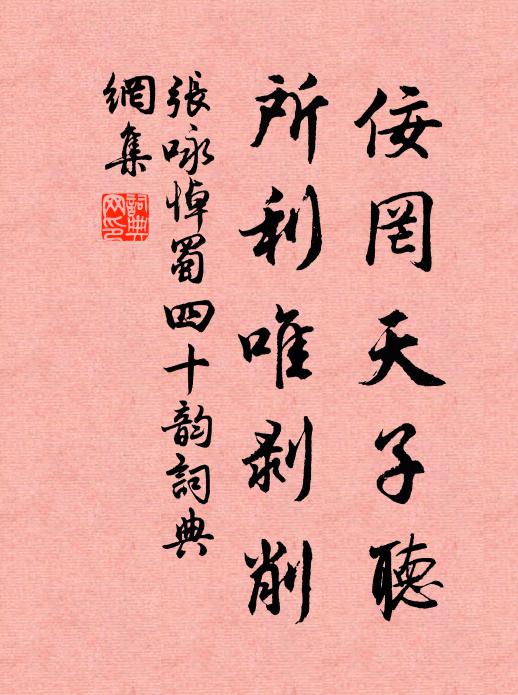 佞罔天子聽
所利唯剥削
張咏悼蜀四十韵詞典
網集
詞典
网印